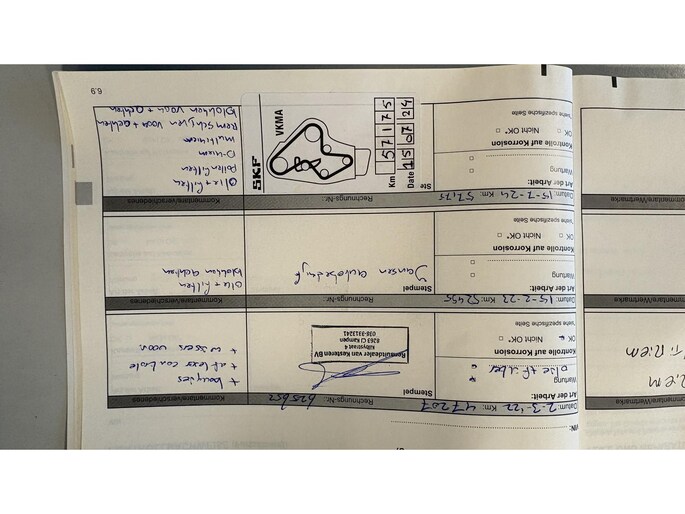 VIN:
Datum: 2-3-'22 Km: 47207
Rechnungs-Nr.: 625652
Kommentare/verschiedenes
Art der Arbeit:
Stempel
Wartung
olie + filter
Kontrolle auf Korrosion
OK
Nicht OK*
*siehe spezifische Seite
Renaultdealer van Kesteren BV
8263 CJ Kampen
038-3313241
+ bougies
+ wissers voor
Datum: 15-2-23 Km: 52455
Rechnungs-Nr.:
Kommentare/verschiedenes
Art der Arbeit:
Stempel
Wartung
Jansen autobedrijf
Kontrolle auf Korrosion
OK
Nicht OK*
*siehe spezifische Seite
olie + filter
blokken achter
Datum: 15-7-24 Km: 57175
Rechnungs-Nr.:
Kommentare/verschiedenes
Art der Arbeit:
Ste
Wartung
Kontrolle auf Korrosion
OK
Nicht OK*
*siehe spezifische Seite
SKF
VKMA
Km 57175
Date 15 07 24
olie + filter
pollenfilter
D-riem
multiriem
Remschijven voor + achter
blokken voor + achter
6.9